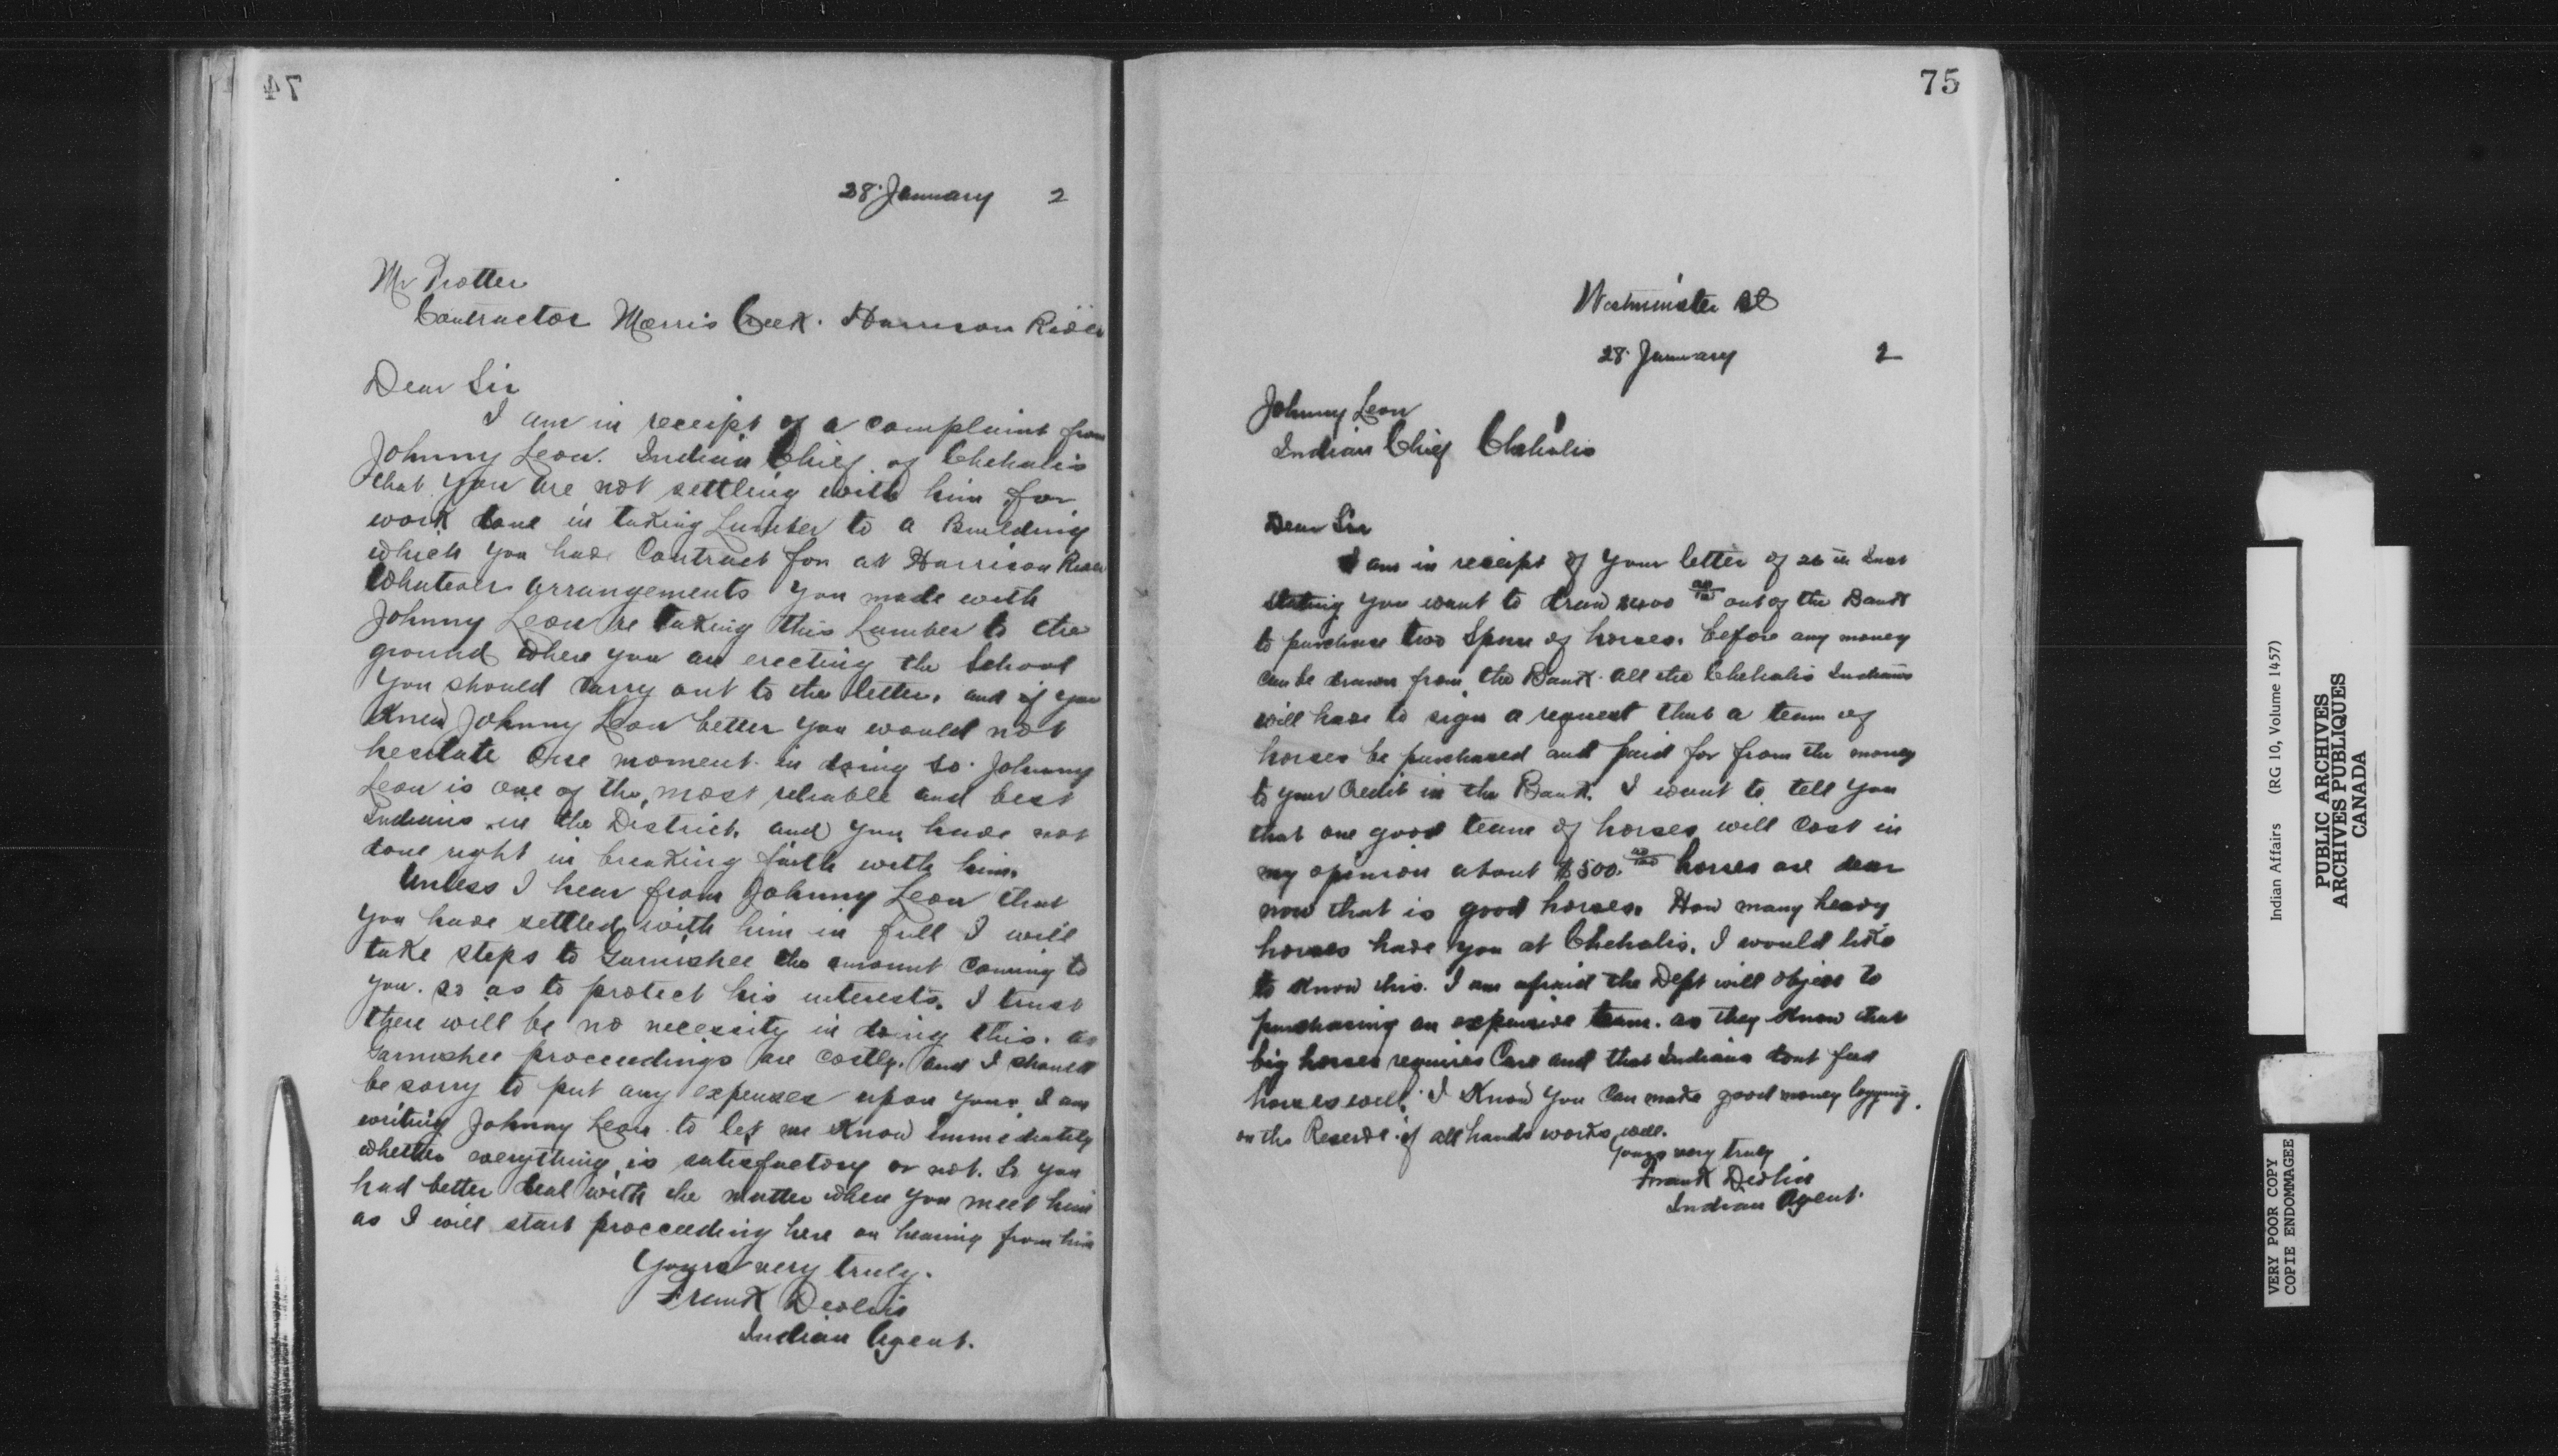 74
28 January 2
Mr Trotter
Contractor Morris Creek. Harrison River
Dear Sir
I am in receipt of a complaint from
Johnny Leon. Indian Chief of Chehalis
that you are not settling with him for
work done in taking Lumber to a Building
which you have Contract for at Harrison River
Whatever arrangements you made with
Johnny Leon re taking this Lumber to the
ground where you are erecting the School
you should carry out to the letter. and if you
knew Johnny Leon better you would not
hesitate one moment in doing so. Johnny
Leon is one of the most reliable and best
Indians in the District. and you have not
done right in breaking faith with him.
Unless I hear from Johnny Leon that
you have settled with him in full I will
take steps to Garnishee the amount Coming to
you. so as to protect his interests. I trust
there will be no necessity in doing this. as
Garnishee proceedings are costly. and I should
be sorry to put any expenses upon you. I am
writing Johnny Leon to let me know immediately
whether everything is satisfactory or not. So you
had better deal with the matter when you meet him
as I will start proceeding here on hearing from him
Yours very truly.
Frank Devlin
Indian Agent.
75
Westminster BC
28 January 2
Johnny Leon
Indian Chief Chehalis
Dear Sir
I am in receipt of your letter of 26th Inst
stating you want to draw out of the Bank
to purchase two Span of horses. before any money
can be drawn from the Bank all the Chehalis Indians
will have to sign a request that a team of
horses be purchased and paid for from the money
to your Credit in the Bank. I want to tell you
that one good team of horses will Cost in
my opinion about $500.00/100 horses are dear
now that is good horses. How many heavy
horses have you at Chehalis. I would like
to know this. I am afraid the Dept will object to
purchasing an expensive team. as they know that
big horses requires Care and that Indians dont feed
horses well. I know you Can make good money logging
on the Reserve if all hands works well.
Yours very truly
Frank Devlin
Indian Agent.
Indian Affairs (RG 10, Volume 1457)
PUBLIC ARCHIVES
ARCHIVES PUBLIQUES
CANADA
VERY POOR COPY
COPIE ENDOMMAGEE